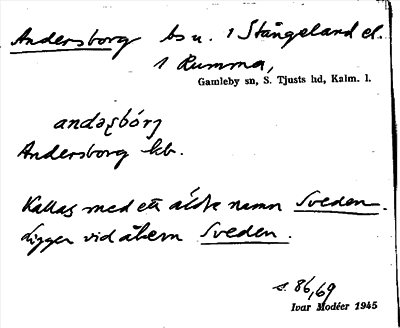 Andersborg bs u. 1 Stångeland el.
1 Rumma,
Gamleby sn, S. Tjusts hd, Kalm. l.
Andersborg kb.
Kallas med ett äldre namn Sveden.
Ligger vid åkern Sveden.
s. 86, 69
Ivar Modéer 1945